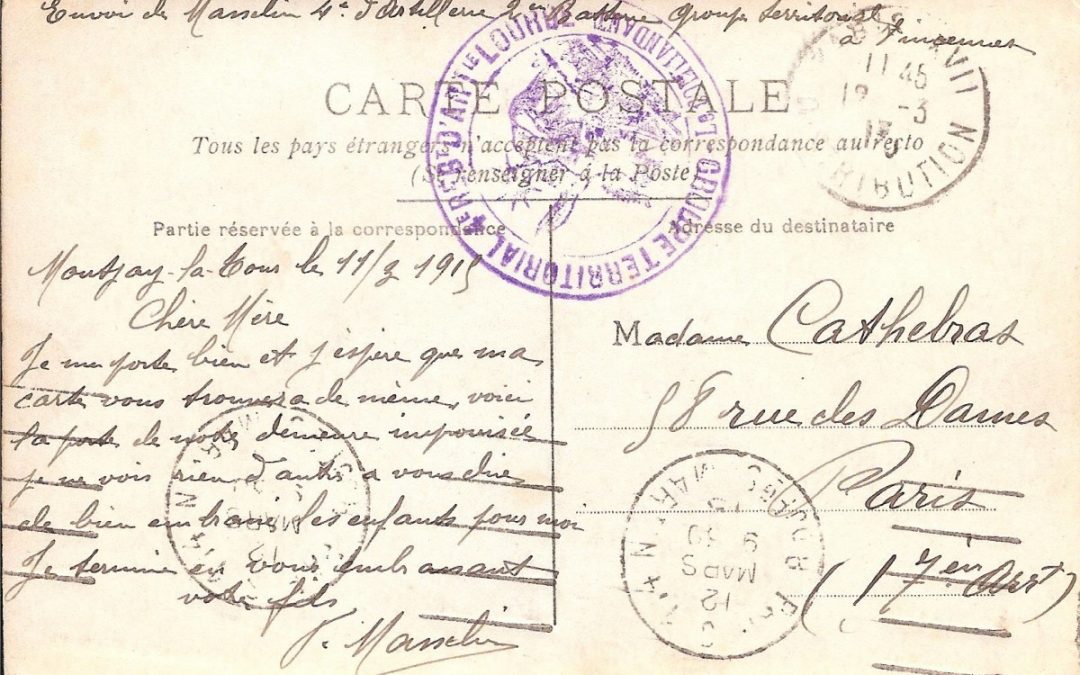 Envoi de Masselin 4e d'Artillerie 2me Batterie Groupe territorial
à Vincennes
CARTE POSTALE
Tous les pays étrangers n'acceptent pas la correspondance au recto
(Se renseigner à la Poste)
Partie réservée à la correspondance
Montjay-la-Tour le 11/3 1915
Chère Mère
Je me porte bien et j'espère que ma
carte vous trouvera de même, voici
la porte de notre demeure improvisée
je ne vois rien d'autre a vous dire
de bien embrasser les enfants pour moi
Je termine en vous embrassant
votre fils
Masselin
Adresse du destinataire
Madame Cathebras
58 rue des Dames
Paris
(17em Arrt)
GROUPE TERRITORIAL
11 45
12 -3
15
12
MARS